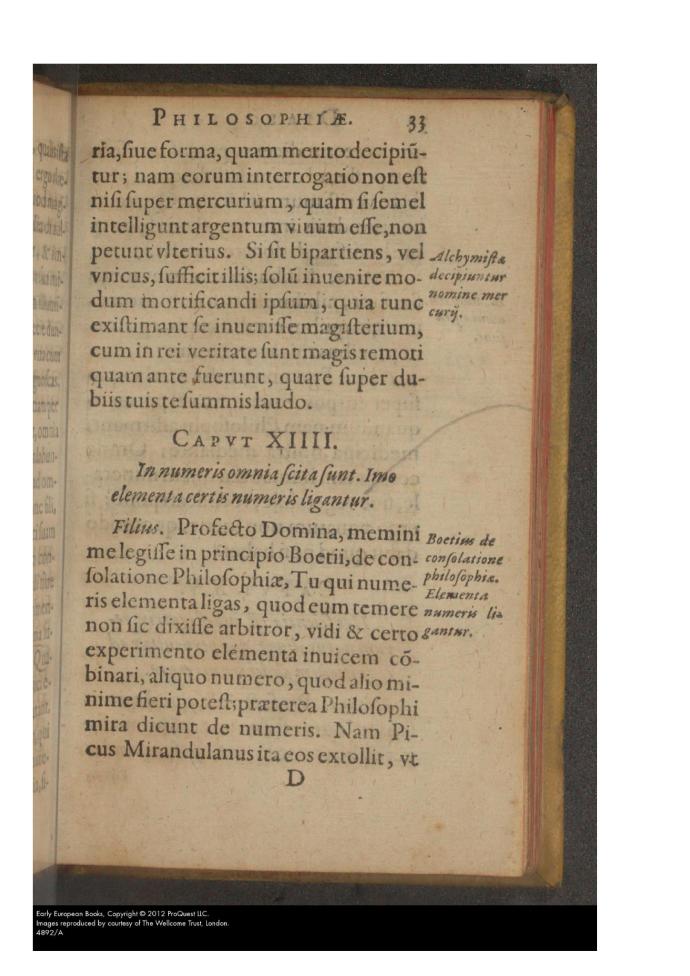 PHILOSOPHIÆ. 33
ria, ſiue forma, quam merito decipiũ-
tur; nam eorum interrogatio non eſt
niſi ſuper mercurium, quam ſi ſemel
intelligunt argentum viuum eſſe, non
petunt vlterius. Si ſit bipartiens, vel
vnicus, ſufficit illis; ſolũ inuenire mo-
dum mortificandi ipſum, quia tunc
exiſtimant ſe inueniſſe magiſterium,
cum in rei veritate ſunt magis remoti
quam ante fuerunt, quare ſuper du-
biis tuis te ſummis laudo.
Alchymiſtæ
decipiuntur
nomine mer
curij.
CAPVT XIIII.
In numeris omnia ſcita ſunt. Imo
elementa certis numeris ligantur.
Filius. Profecto Domina, memini
me legiſſe in principio Boetii, de con-
ſolatione Philoſophiæ, Tu qui nume-
ris elementa ligas, quod eum temere
non ſic dixiſſe arbitror, vidi & certo
experimento elementa inuicem cõ-
binari, aliquo numero, quod alio mi-
nime fieri poteſt; præterea Philoſophi
mira dicunt de numeris. Nam Pi-
cus Mirandulanus ita eos extollit, vt
Boetius de
conſolatione
philoſophiæ.
Elementa
numeris li-
gantur.
D
Early European Books, Copyright © 2012 ProQuest LLC.
Images reproduced by courtesy of The Wellcome Trust, London.
4892/A